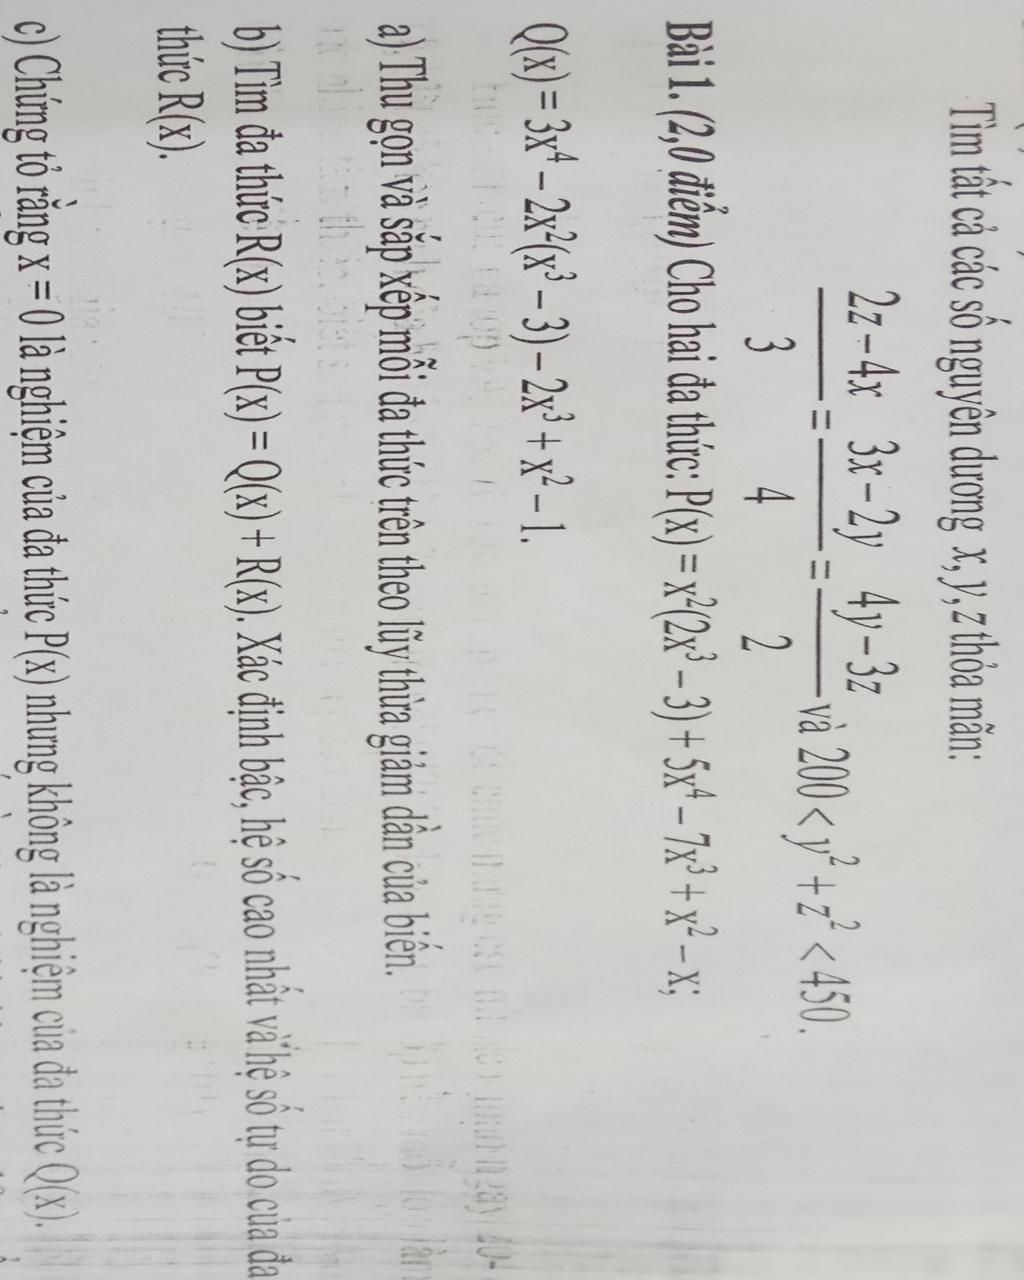 Tìm tất cả các số nguyên dương x, y, z thỏa mãn:
2z – 4x / 3 = 3x – 2y / 4 = 4y – 3z / 2 và 200 < y² + z² < 450.
Bài 1. (2,0 điểm) Cho hai đa thức: P(x) = x²(2x³ – 3) + 5x⁴ – 7x³ + x² – x;
Q(x) = 3x⁴ – 2x²(x³ – 3) – 2x³ + x² – 1.
a) Thu gọn và sắp xếp mỗi đa thức trên theo lũy thừa giảm dần của biến.
b) Tìm đa thức R(x) biết P(x) = Q(x) + R(x). Xác định bậc, hệ số cao nhất và hệ số tự do của đa
thức R(x).
c) Chứng tỏ rằng x = 0 là nghiệm của đa thức P(x) nhưng không là nghiệm của đa thức Q(x).